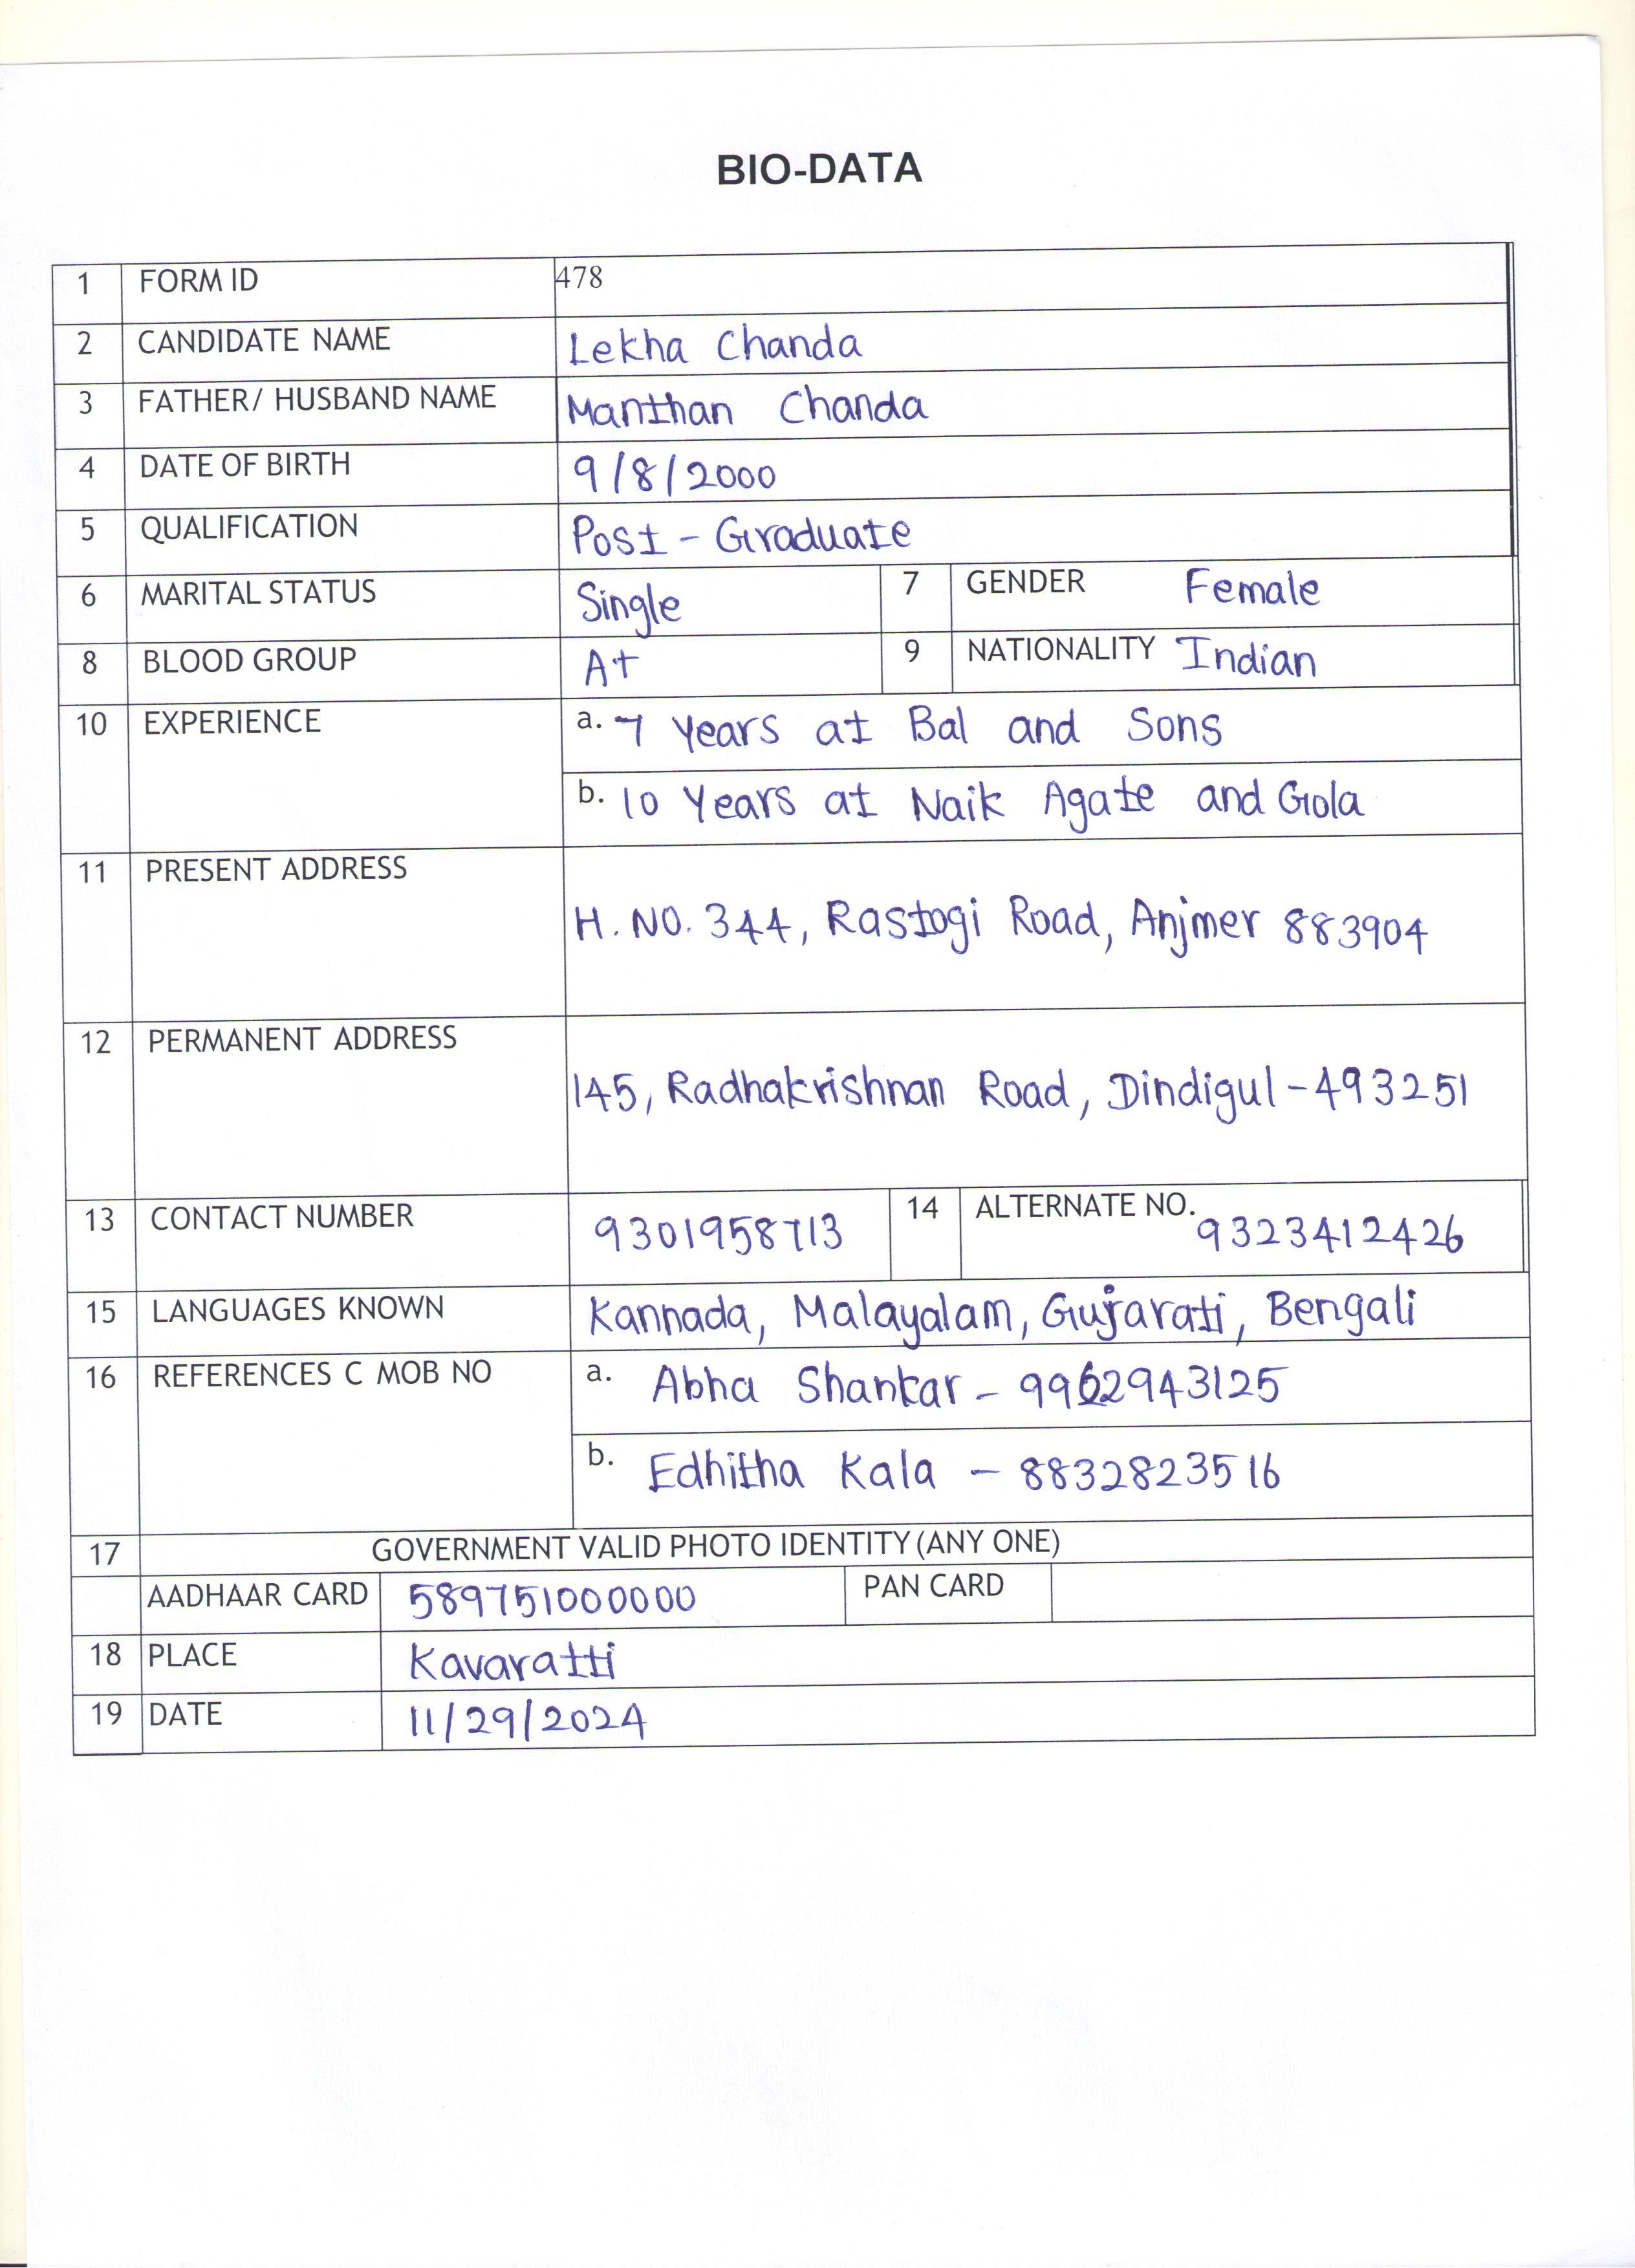 BIO-DATA
1 FORM ID 478
2 CANDIDATE NAME Lekha Chanda
3 FATHER/ HUSBAND NAME Manthan Chanda
4 DATE OF BIRTH 9/8/2000
5 QUALIFICATION Post - Graduate
6 MARITAL STATUS Single 7 GENDER Female
8 BLOOD GROUP A+ 9 NATIONALITY Indian
10 EXPERIENCE a. 7 Years at Bal and Sons
b. 10 Years at Naik Agate and Gola
11 PRESENT ADDRESS
H. NO. 344, Rastogi Road, Anjmer 883904
12 PERMANENT ADDRESS
145, Radhakrishnan Road, Dindigul - 493251
13 CONTACT NUMBER 9301958713 14 ALTERNATE NO. 9323412426
15 LANGUAGES KNOWN Kannada, Malayalam, Gujarati, Bengali
16 REFERENCES C MOB NO a. Abha Shankar - 9962943125
b. Edhitha Kala - 8832823516
17 GOVERNMENT VALID PHOTO IDENTITY (ANY ONE)
AADHAAR CARD 589751000000 PAN CARD
18 PLACE Kavaratti
19 DATE 11/29/2024